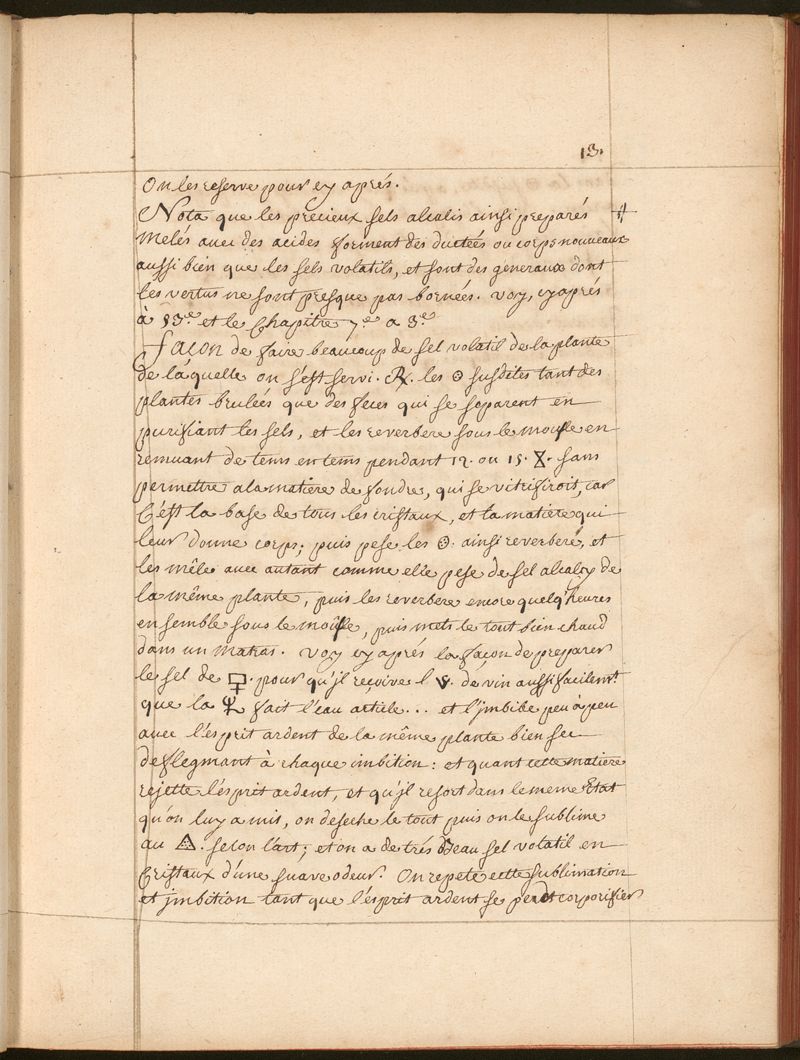 13.
On les reserve pour cy aprés.
Nota que les precieux sels alcalis ainsi preparés
melés avec des acides forment des ductées ou corps nouveaux
aussi bien que les sels volatils, et sont des generaux dont
les vertus ne sont presque pas bornées. voy, cy aprés
à 13.e et le Chapitre 7.e a 3.e
Façon de faire beaucoup de sel volatil de la plante
de laquelle on s'est servi. ℞. les susdites tant des
plantes brulées que des feces qui se separent en
purifiant les sels, et les reverbere sous le moufle en
remuant de tems en tems pendant 12. ou 15. sans
permettre a la matiere de fondre, qui se vitrifiroit, car
C'est la base de tous les cristaux, et la matiere qui
leur donne corps; puis pese les ainsi reverberé, et
les mêle avec autant comme elle pese de sel alcaly de
la même plante, puis les reverbere encore quelq' heures
ensemble sous le moufle, puis mets le tout bien chaud
dans un matras. voy cy aprés la façon de preparer
le sel de pour qu'jl reçoive l de vin aussi facilemt.
que la fait l'eau article... et l'jmbibe peu à peu
avec l'esprit ardent de la même plante bien sec
deflegmant à chaque imbition: et quant cette matiere
rejette l'esprit ardent, et qu'jl resort dans le meme Etat
qu'on luy a mis, on deseche le tout puis on le sublime
au selon l'art; et on a de trés beau sel volatil en
Cristaux d'une suave odeur. On repete cette sublimation
et jmbition tant que l'esprit ardent se perdt corporifier